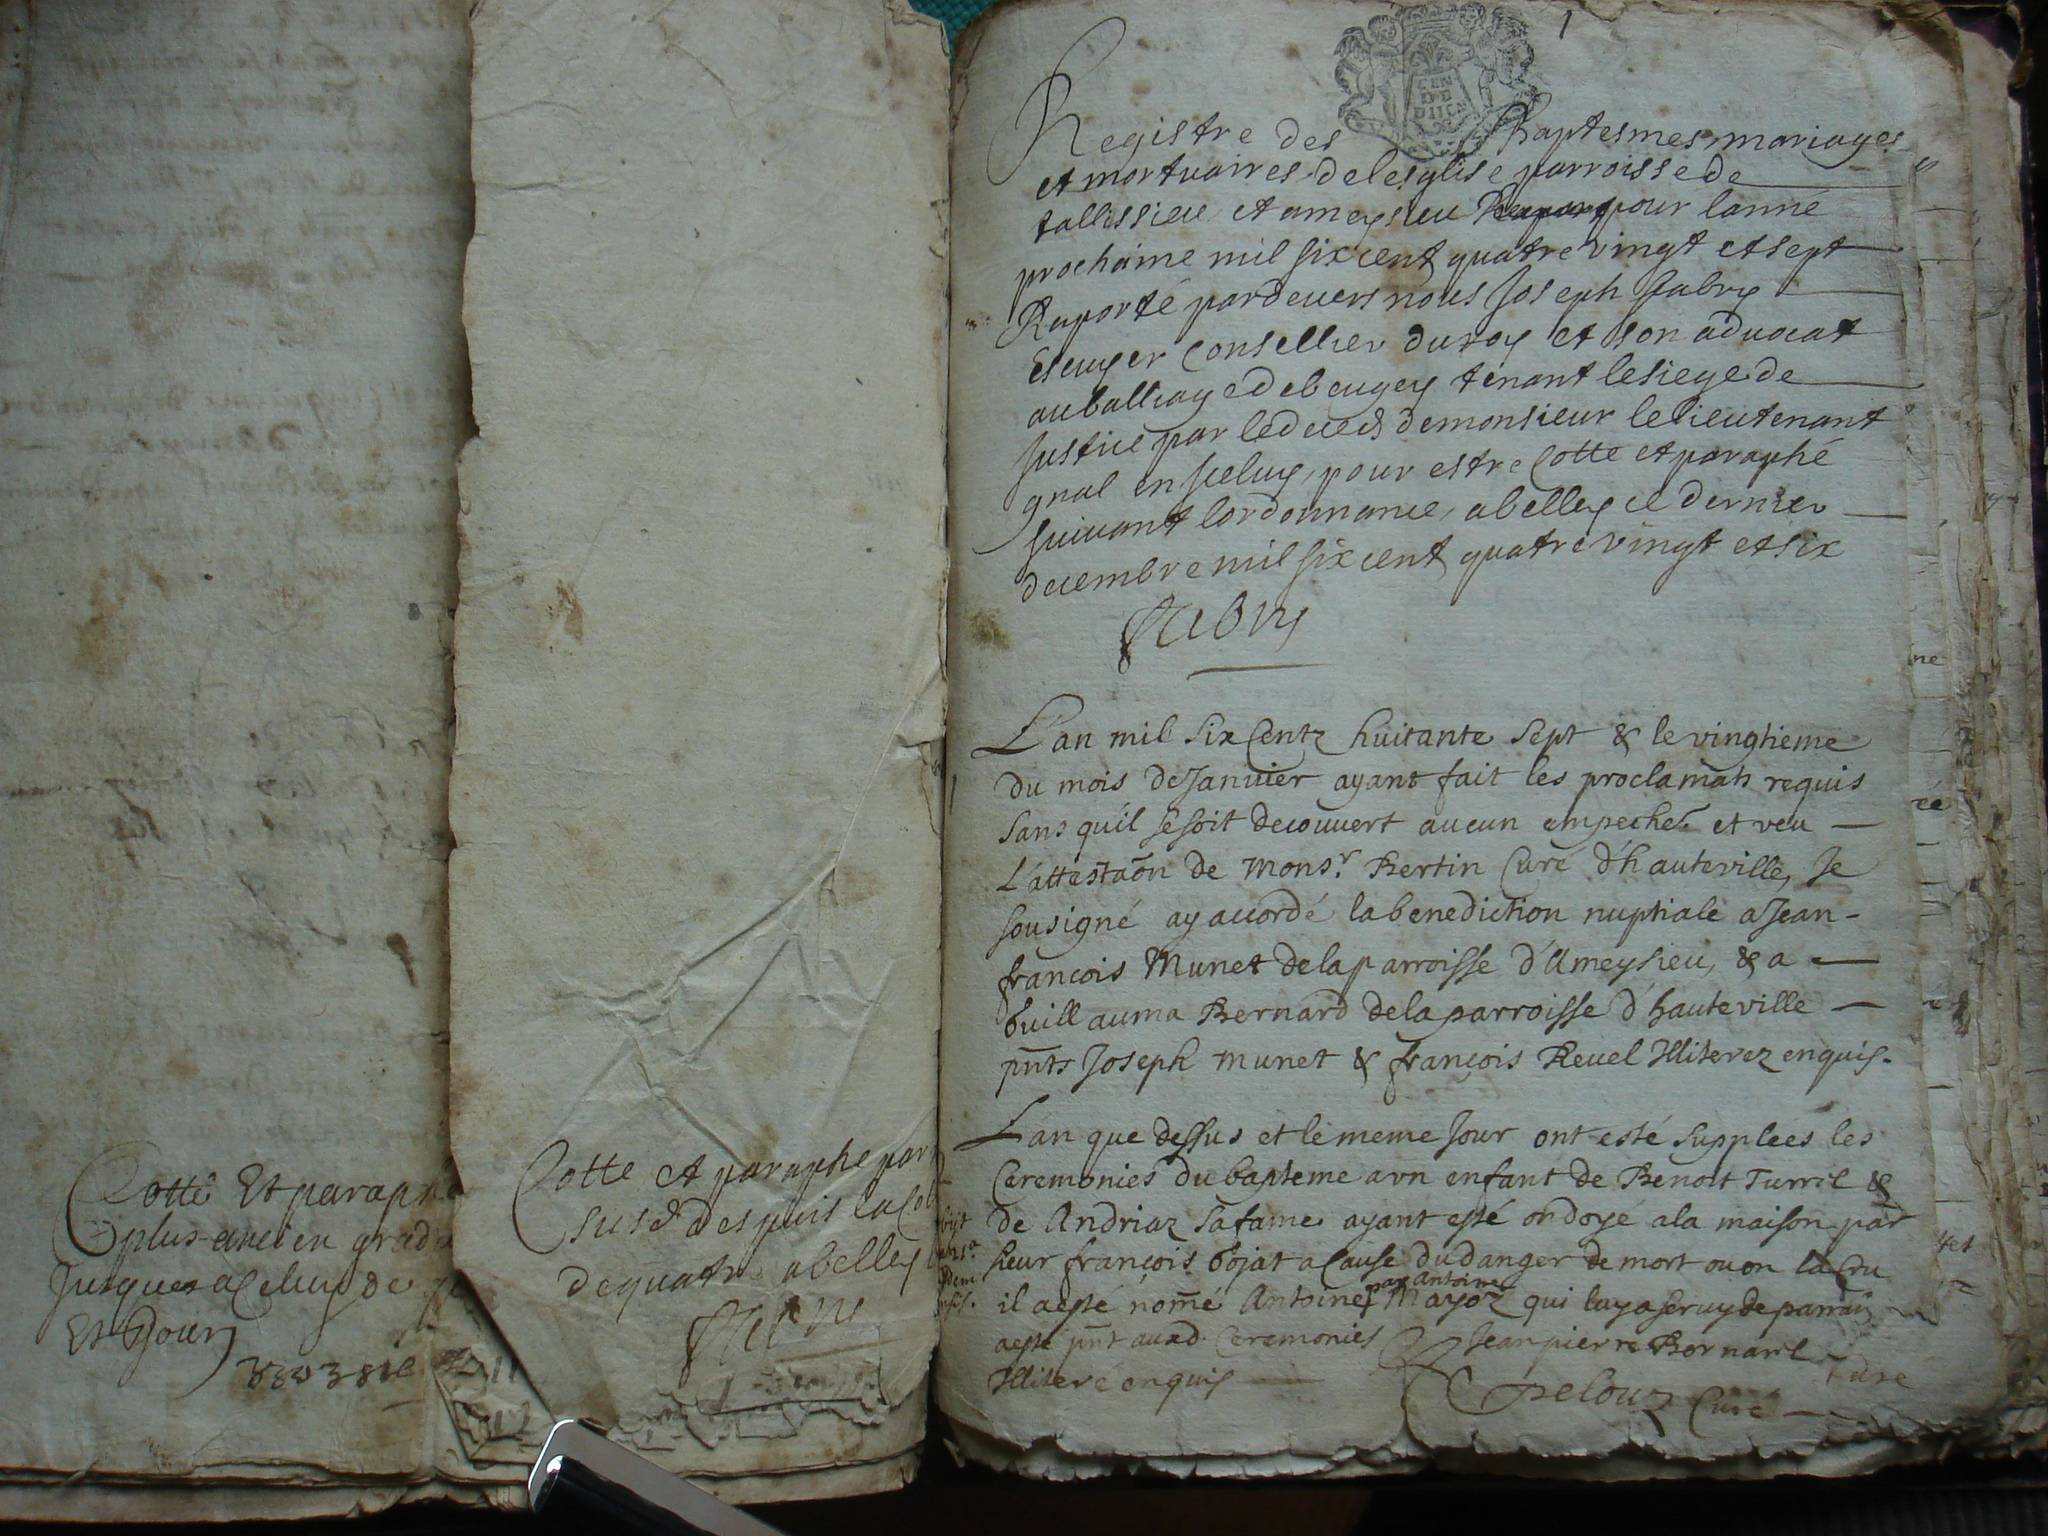 Cotté Et paraphé
plus ancien gradu
Jusques a Celuy de
Et Jour
Cotte et paraphe par
susd despuis la Col
de quatre abelley
Fabry
1
Registre des baptesmes, mariages
et mortuaires de lesglise parroisse de
tallissieu et ameysieu pour lanné
prochaine mil six cent quatre vingt et sept
Raporté pardevers nous Joseph fabry
Escuyer Consellier du roy et son advocat
au balliage de beugey tenant le siege de
Justice par le deceds de monsieur le lieutenant
gnal en Iceluy, pour estre Cotte et paraphé
suivant lordonnance, a belley ce dernier
decembre mil six cent quatre vingt et six
Fabry
L'an mil six Centz huitante sept & le vingtieme
du mois de Janvier ayant fait les proclamaōns requis
sans qu'il se soit decouvert aucun empechet et veu
L'attestaōn de Monsr. Bertin Curé d'hauteville, Je
sousigné ay accordé la benediction nuptiale a Jean-
françois Munet de la parroisse d'Ameysieu, & a
Guillauma Bernard de la parroisse d'hauteville
pn̄ts Joseph Munet & françois Revel Illiterez enquis.
L'an que dessus et le meme Jour ont esté supplées les
Ceremonies du bapteme a vn enfant de Benoit Turril &
de Andriaz sa fame ayant esté ondoyé a la maison par
sieur françois Gojat a Cause du danger de mort ou on la Cru
il a esté nom̄é Antoine par Antoine Mayoz qui luy a servy de parrain
a esté pn̄t auxd. Ceremonies Jean pierre Bornard
Illiteré enquis
Pelouz Curé